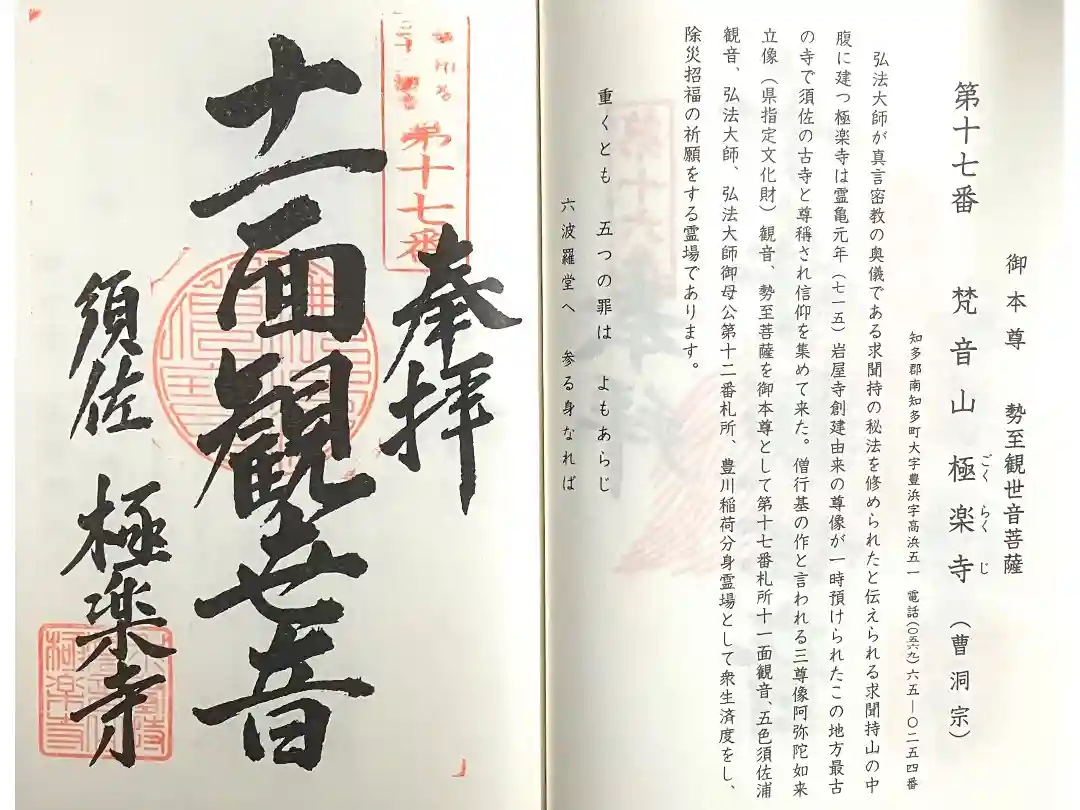 御本尊 勢至観世音菩薩
第十七番 梵音山極楽寺(曹洞宗)
ごくらくじ
知多郡南知多町大字豊浜字高浜五一 電話(〇五六九)六五—〇二五四番
弘法大師が真言密教の奥儀である求聞持の秘法を修められたと伝えられる求聞持山の中
腹に建つ極楽寺は霊亀元年(七一五)岩屋寺創建由来の尊像が一時預けられたこの地方最古
の寺で須佐の古寺と尊稱され信仰を集めて来た。僧行基の作と言われる三尊像阿弥陀如来
立像(県指定文化財)観音、勢至菩薩を御本尊として第十七番札所十一面観音、五色須佐浦
観音、弘法大師、弘法大師御母公第十二番札所、豊川稲荷分身霊場として衆生済度をし、
除災招福の祈願をする霊場であります。
重くとも 五つの罪は よもあらじ
六波羅堂へ 参る身なれば
第十七番
奉拝
十一面観世音
須佐 極楽寺